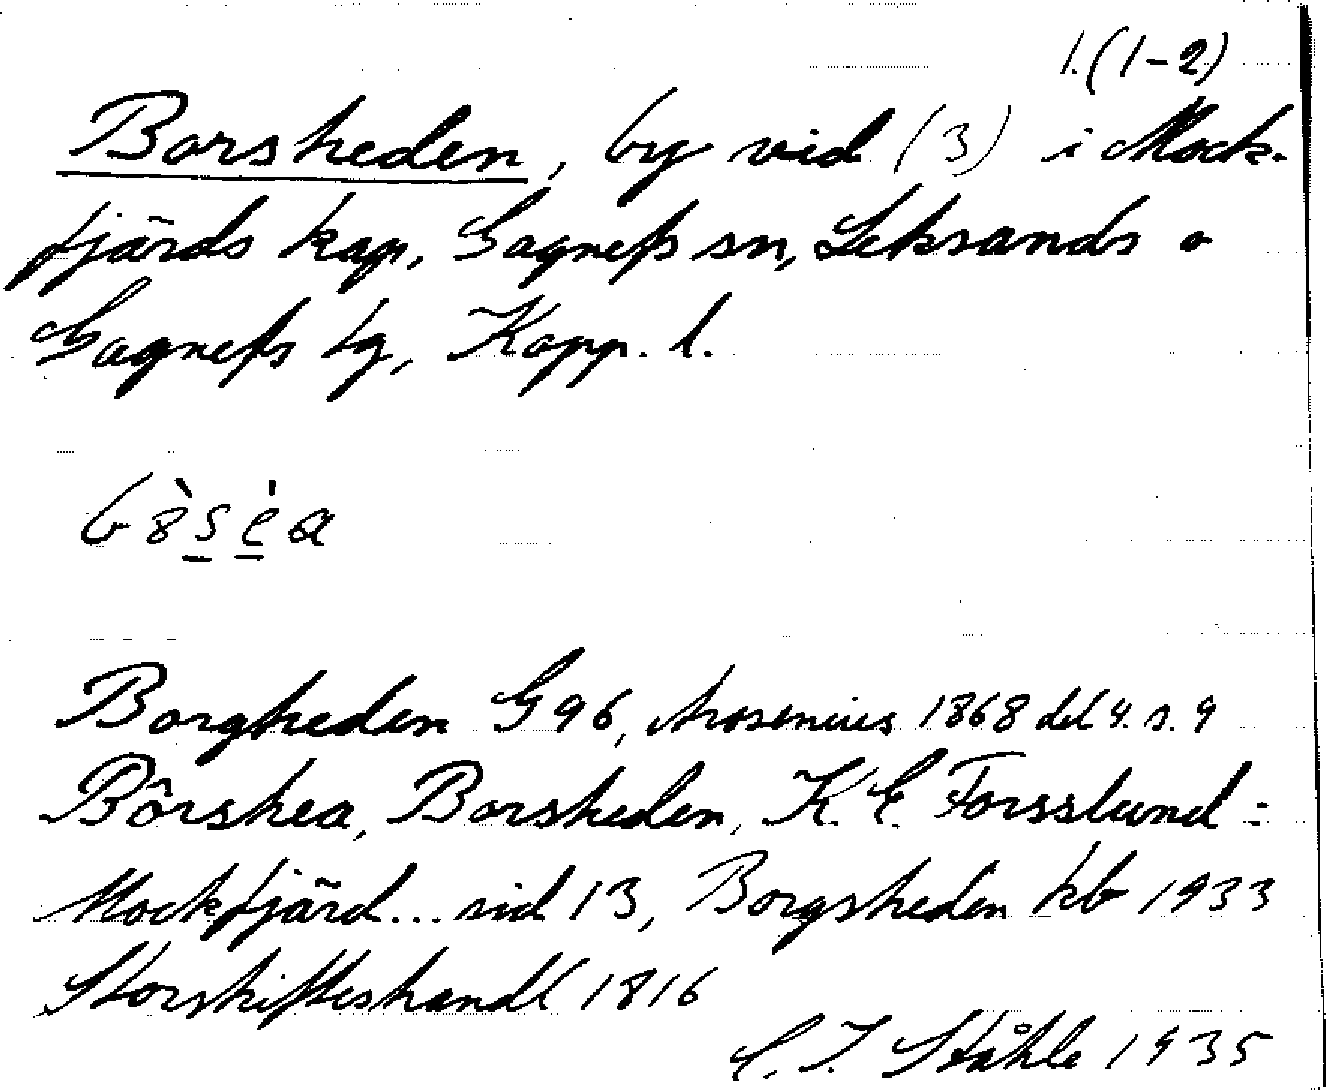 1.(1-2)
Borsheden, by vid (3) i Mock-
fjärds kap, Gagnefs sn, Leksands o
Gagnefs tg, Kopp. l.
Borgheden G96, Arosenius 1868 del 4. s. 9
Bôrshea, Borsheden, K. E. Forsslund:
Mockfjärd... sid 13, Borgsheden kb 1933
Storskifteshandl 1816
C. I. Ståhle 1935